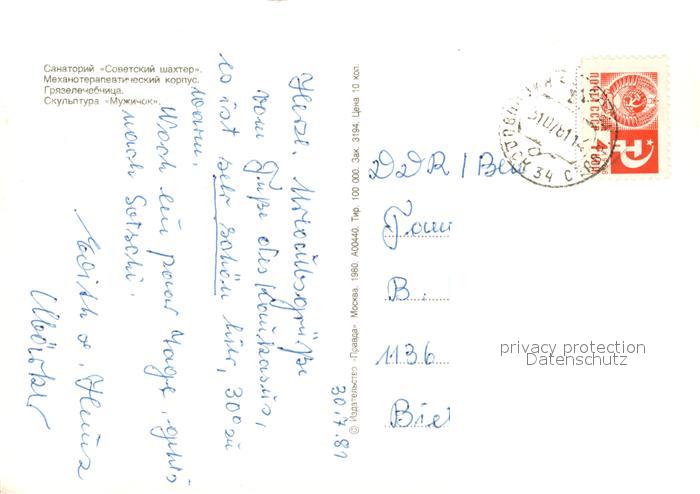 Санаторий «Советский шахтер».
Механотерапевтический корпус.
Грязелечебница.
Скульптура «Мужичок».
Herzl. Urlaubsgrüße
vom Fuße des Kaukasus,
es ist sehr schön hier, 30° zu
warm.
Noch ein paar Tage, geht's
nach Sotschi.
Edith u. Heinz
30.7.81
© Издательство «Правда» Москва. 1980. А00440. Тир. 100 000. Зак. 3194. Цена 10 коп.
DDR / Be
Fam
B.
1136
Be
ПОЧТА СССР
4 КОП
privacy protection
Datenschutz